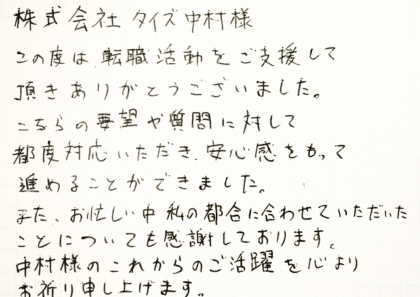 株式会社タイズ中村様
この度は転職活動をご支援して
頂きありがとうございました。
こちらの要望や質問に対して
都度対応いただき、安心感をもって
進めることができました。
また、お忙しい中私の都合に合わせていただいた
ことについても感謝しております。
中村様のこれからのご活躍を心より
お祈り申し上げます。